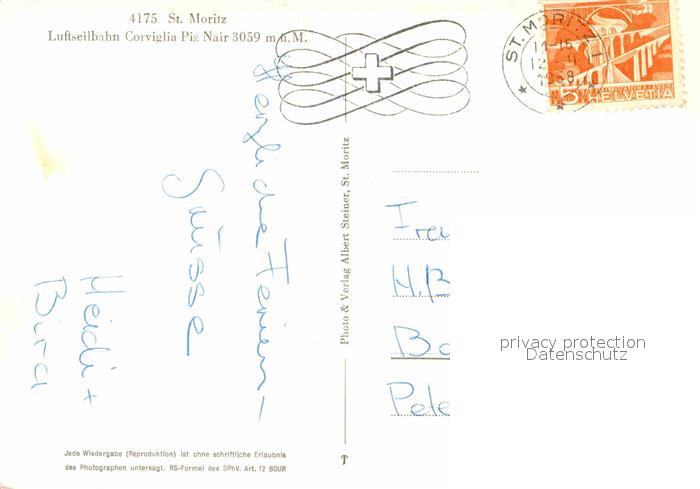 4175 St. Moritz
Luftseilbahn Corviglia-Piz Nair 3059 m ü. M.
ST. MORITZ
1958
5 HELVETIA
Herzliche Ferien-
Grüsse
Heidi +
Photo & Verlag Albert Steiner, St. Moritz
H.B
Bo
Pete
privacy protection
Datenschutz
Jede Wiedergabe (Reproduktion) ist ohne schriftliche Erlaubnis
des Photographen untersagt. RS-Formel des SPhV. Art. 12 BGUR